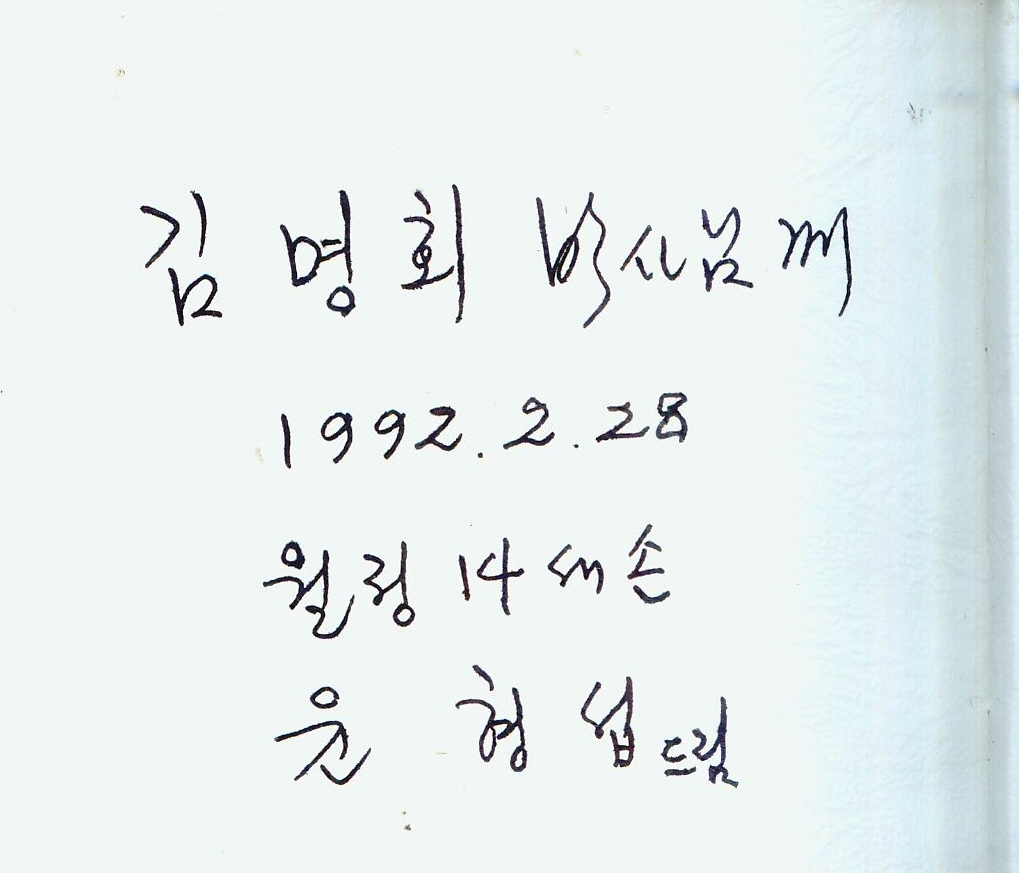 김 명 회 박사님께
1992.2.28
월정 14 세손
윤 형 섭 드림